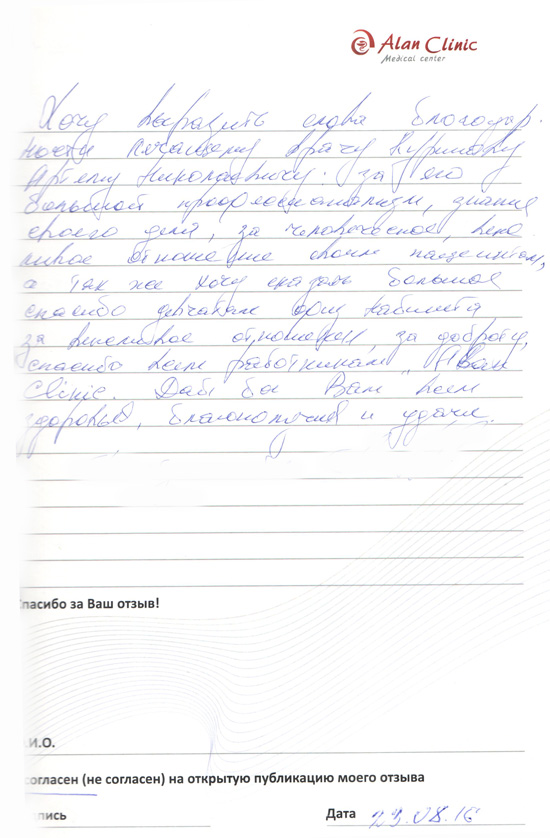 Alan Clinic
Medical center
Хочу выразить слова благодар-
ности лечащему врачу
Артему Николаевичу. за его
большой профессионализм, знание
своего дела, за человеческое, вежо
ливое отношение своим пациентам,
а так же хочу сказать большое
спасибо девчатам физ кабинета
за вежливое отношение, за доброту,
спасибо всем работникам "Алан
Clinic. Дай бог Вам всем
здоровья, благополучия и удачи.
Спасибо за Ваш отзыв!
.И.О.
согласен (не согласен) на открытую публикацию моего отзыва
пись
Дата 23.08.16